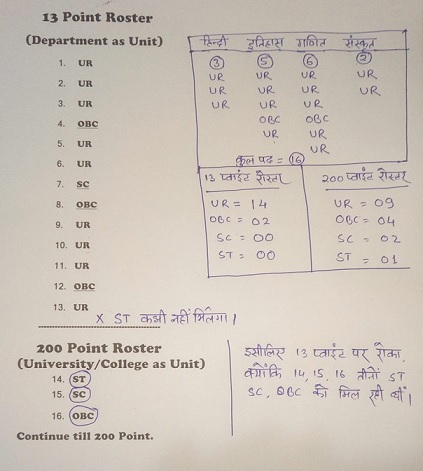 13 Point Roster
(Department as Unit)
1. UR
2. UR
3. UR
4. OBC
5. UR
6. UR
7. SC
8. OBC
9. UR
10. UR
11. UR
12. OBC
13. UR
X ST कभी नहीं मिलेगा।
हिन्दी इतिहास गणित संस्कृत
3 5 6 2
UR UR UR UR
UR UR UR UR
UR UR UR
OBC OBC
UR UR
UR
कुल पद = 16
13 प्वाइंट रोस्टर
UR = 14
OBC = 02
SC = 00
ST = 00
200 प्वाइंट रोस्टर
UR = 09
OBC = 04
SC = 02
ST = 01
200 Point Roster
(University/College as Unit)
14. ST
15. SC
16. OBC
Continue till 200 Point.
इसीलिए 13 प्वाइंट पर रोका,
क्योंकि 14, 15, 16 तीनों ST
SC, OBC को मिल रही थीं।